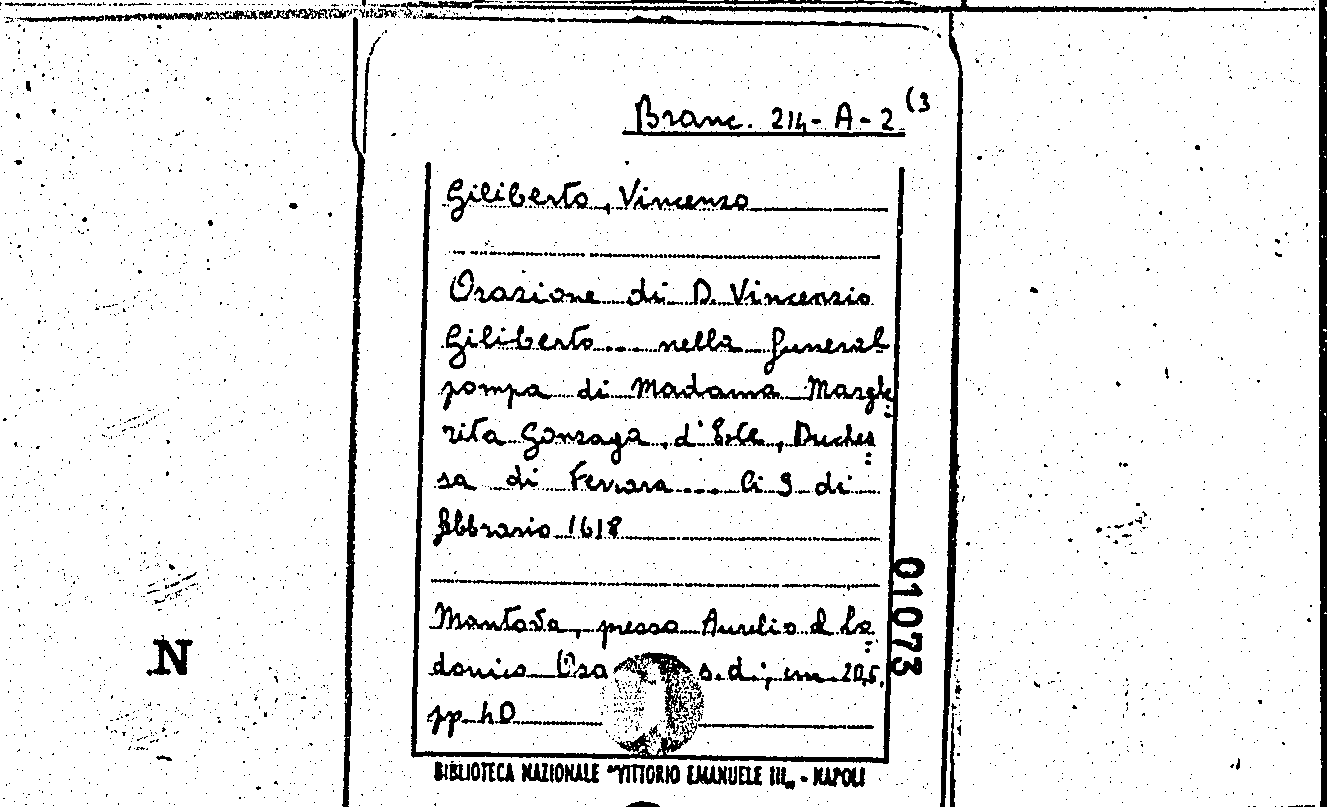 Branc. 214-A-2 (3
Giliberto, Vincenzo
Orazione di D. Vincenzio
Giliberto ... nella funeral
pompa di Madama Marghe=
rita Gonzaga, d'Este, Duches=
sa di Ferrara ... li 9 di
febbrario 1618
Mantova, presso Aurelio & Lo=
donico Osa s.d.; cm. 20,5,
pp. 40
01073
N
BIBLIOTECA NAZIONALE "VITTORIO EMANUELE III„ - NAPOLI